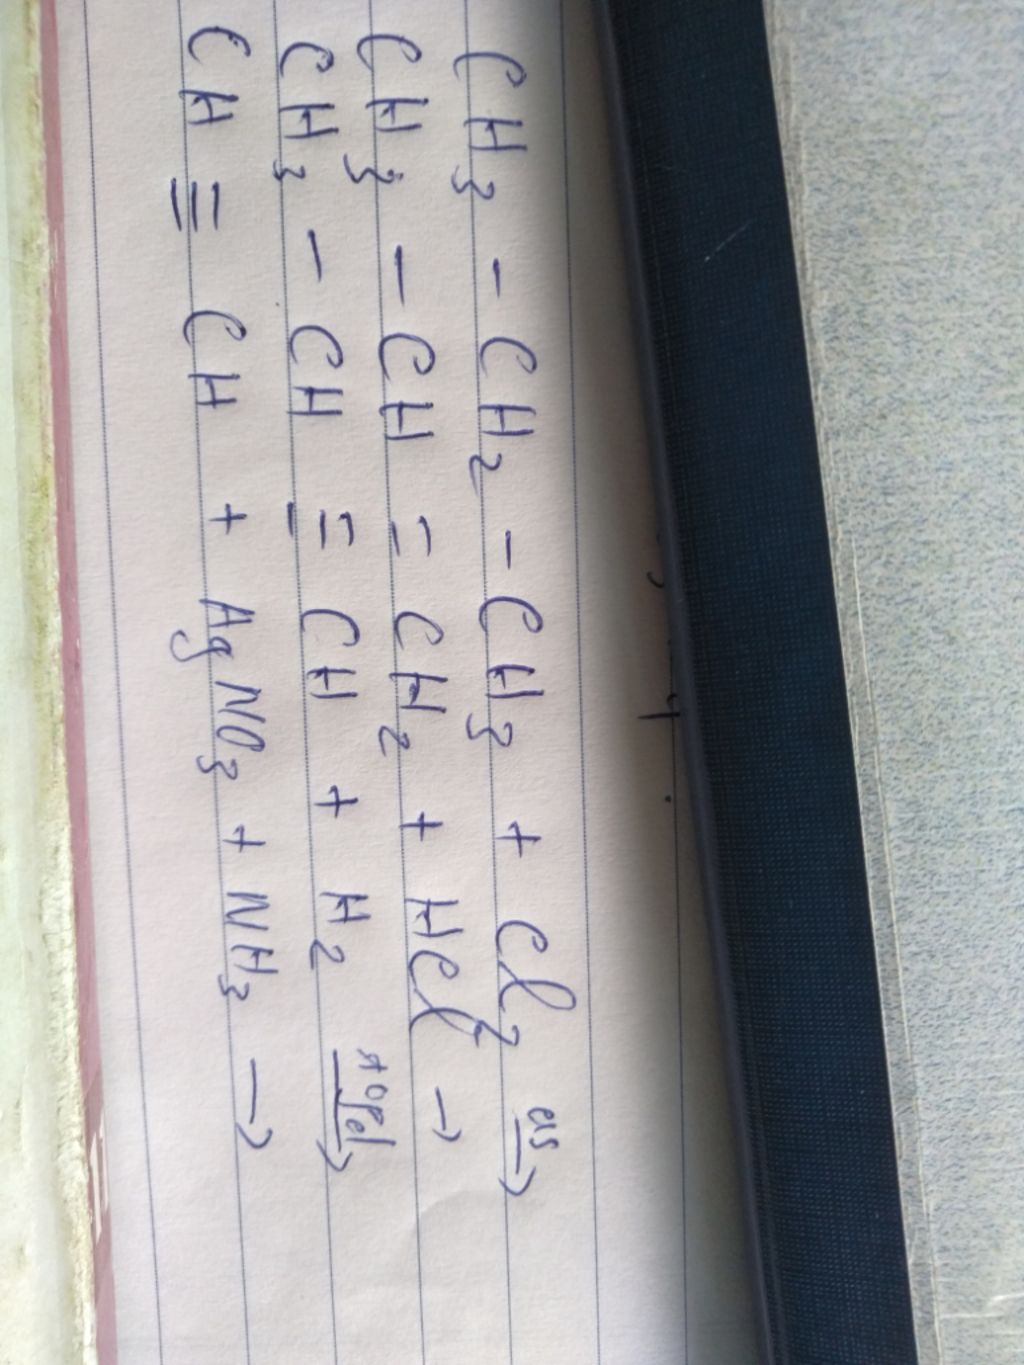 CH₃ - CH₂ - CH₃ + Cl₂ as→
CH₃ - CH = CH₂ + HCl →
CH₃ - CH ≡ CH + H₂ →
CH ≡ CH + AgNO₃ + NH₃ →